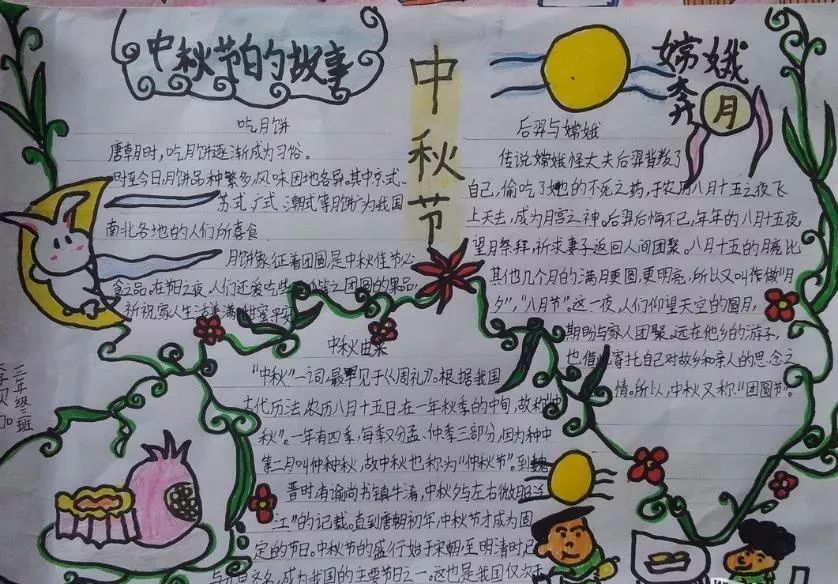 中秋节的故事
吃月饼
唐朝时，吃月饼逐渐成为习俗。
时至今日，月饼品种繁多，风味因地各异。其中京式、
苏式、广式、潮式等月饼广为我国
南北各地的人们所喜食
月饼象征着团圆，是中秋佳节必
食之品。在节日之夜，人们还爱吃些 团圆的果品
祈祝家人生活美满 甜蜜平安
中秋节
嫦娥奔月
后羿与嫦娥
传说嫦娥怪丈夫后羿背叛了
自己，偷吃了她的不死之药，于农历八月十五之夜飞
上天去，成为月宫之神。后羿后悔不已，年年的八月十五夜
望月祭拜，祈求妻子返回人间团聚。八月十五的月亮比
其他几个月的满月更圆，更明亮，所以又叫作做“月
夕”，“八月节”。这一夜，人们仰望天空的圆月，
期盼与家人团聚。远在他乡的游子，
也借 寄托自己对故乡和亲人的思念之
情。所以，中秋又称“团圆节”。
中秋由来
“中秋”一词，最早见于《周礼》。根据我国
古代历法，农历八月十五日，在一年秋季的中旬，故称“中
秋”。一年有四季，每季又分孟、仲、季三部分，因为种中
第二月叫仲种秋，故中秋也称为“仲秋节”。到魏
晋时，有谕尚书镇牛渚，中秋夕与左右微服泛
江”的记载。直到唐朝初年，中秋节才成为固
定的节日。中秋节的盛行始于宋朝，至明清时已
与元旦齐名，成为我国的主要节日之一。这也是我国仅次于
三年级三班